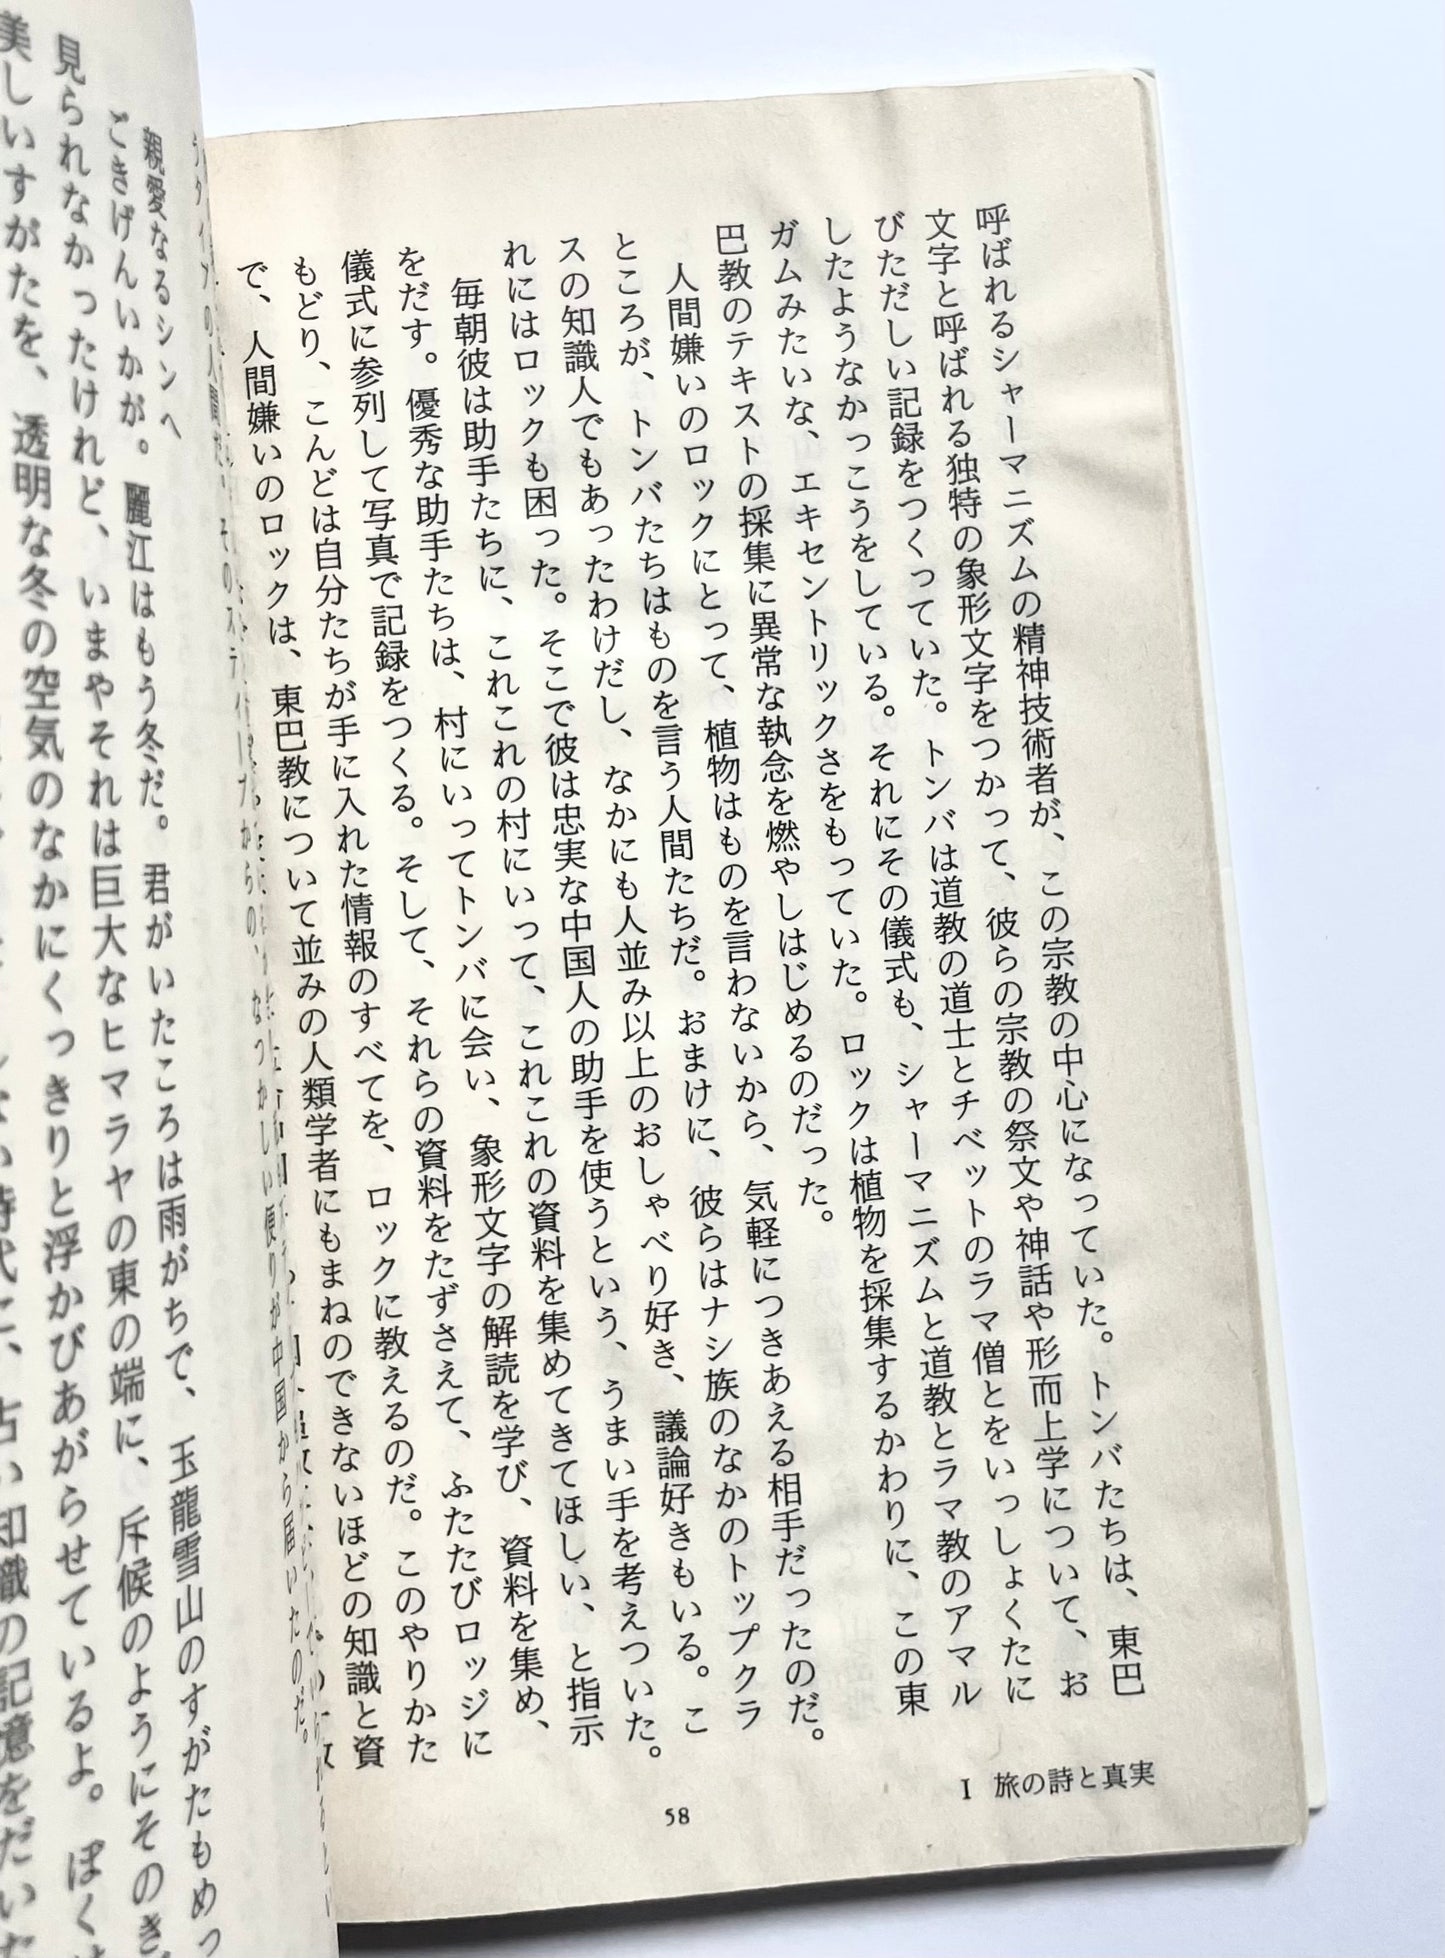 呼ばれるシャーマニズムの精神技術者が、この宗教の中心になっていた。トンバたちは、東巴
文字と呼ばれる独特の象形文字をつかって、彼らの宗教の祭文や神話や形而上学について、お
びただしい記録をつくっていた。トンバは道教の道士とチベットのラマ僧とをいっしょくたに
したようなかっこうをしている。それにその儀式も、シャーマニズムと道教とラマ教のアマル
ガムみたいな、エキセントリックさをもっていた。ロックは植物を採集するかわりに、この東
巴教のテキストの採集に異常な執念を燃やしはじめるのだった。
人間嫌いのロックにとって、植物はものを言わないから、気軽につきあえる相手だったのだ。
ところが、トンバたちはものを言う人間たちだ。おまけに、彼らはナシ族のなかのトップクラ
スの知識人でもあったわけだし、なかにも人並み以上のおしゃべり好き、議論好きもいる。こ
れにはロックも困った。そこで彼は忠実な中国人の助手を使うという、うまい手を考えついた。
毎朝彼は助手たちに、これこれの村にいって、これこれの資料を集めてきてほしい、と指示
をだす。優秀な助手たちは、村にいってトンバに会い、象形文字の解読を学び、資料を集め、
儀式に参列して写真で記録をつくる。そして、それらの資料をたずさえて、ふたたびロッジに
もどり、こんどは自分たちが手に入れた情報のすべてを、ロックに教えるのだ。このやりかた
で、人間嫌いのロックは、東巴教について並みの人類学者にもまねのできないほどの知識と資
I 旅の詩と真実
58
からの、なつかしい便りが中国から届いたのだ。
親愛なるシンへ
ごきげんいかが。麗江はもう冬だ。君がいたころは雨がちで、玉龍雪山のすがたもめっ
見られなかったけれど、いまやそれは巨大なヒマラヤの東の端に、斥候のようにそのき
美しいすがたを、透明な冬の空気のなかにくっきりと浮かびあがらせているよ。ぼくは
い時代に、古い知識の記憶をだいた